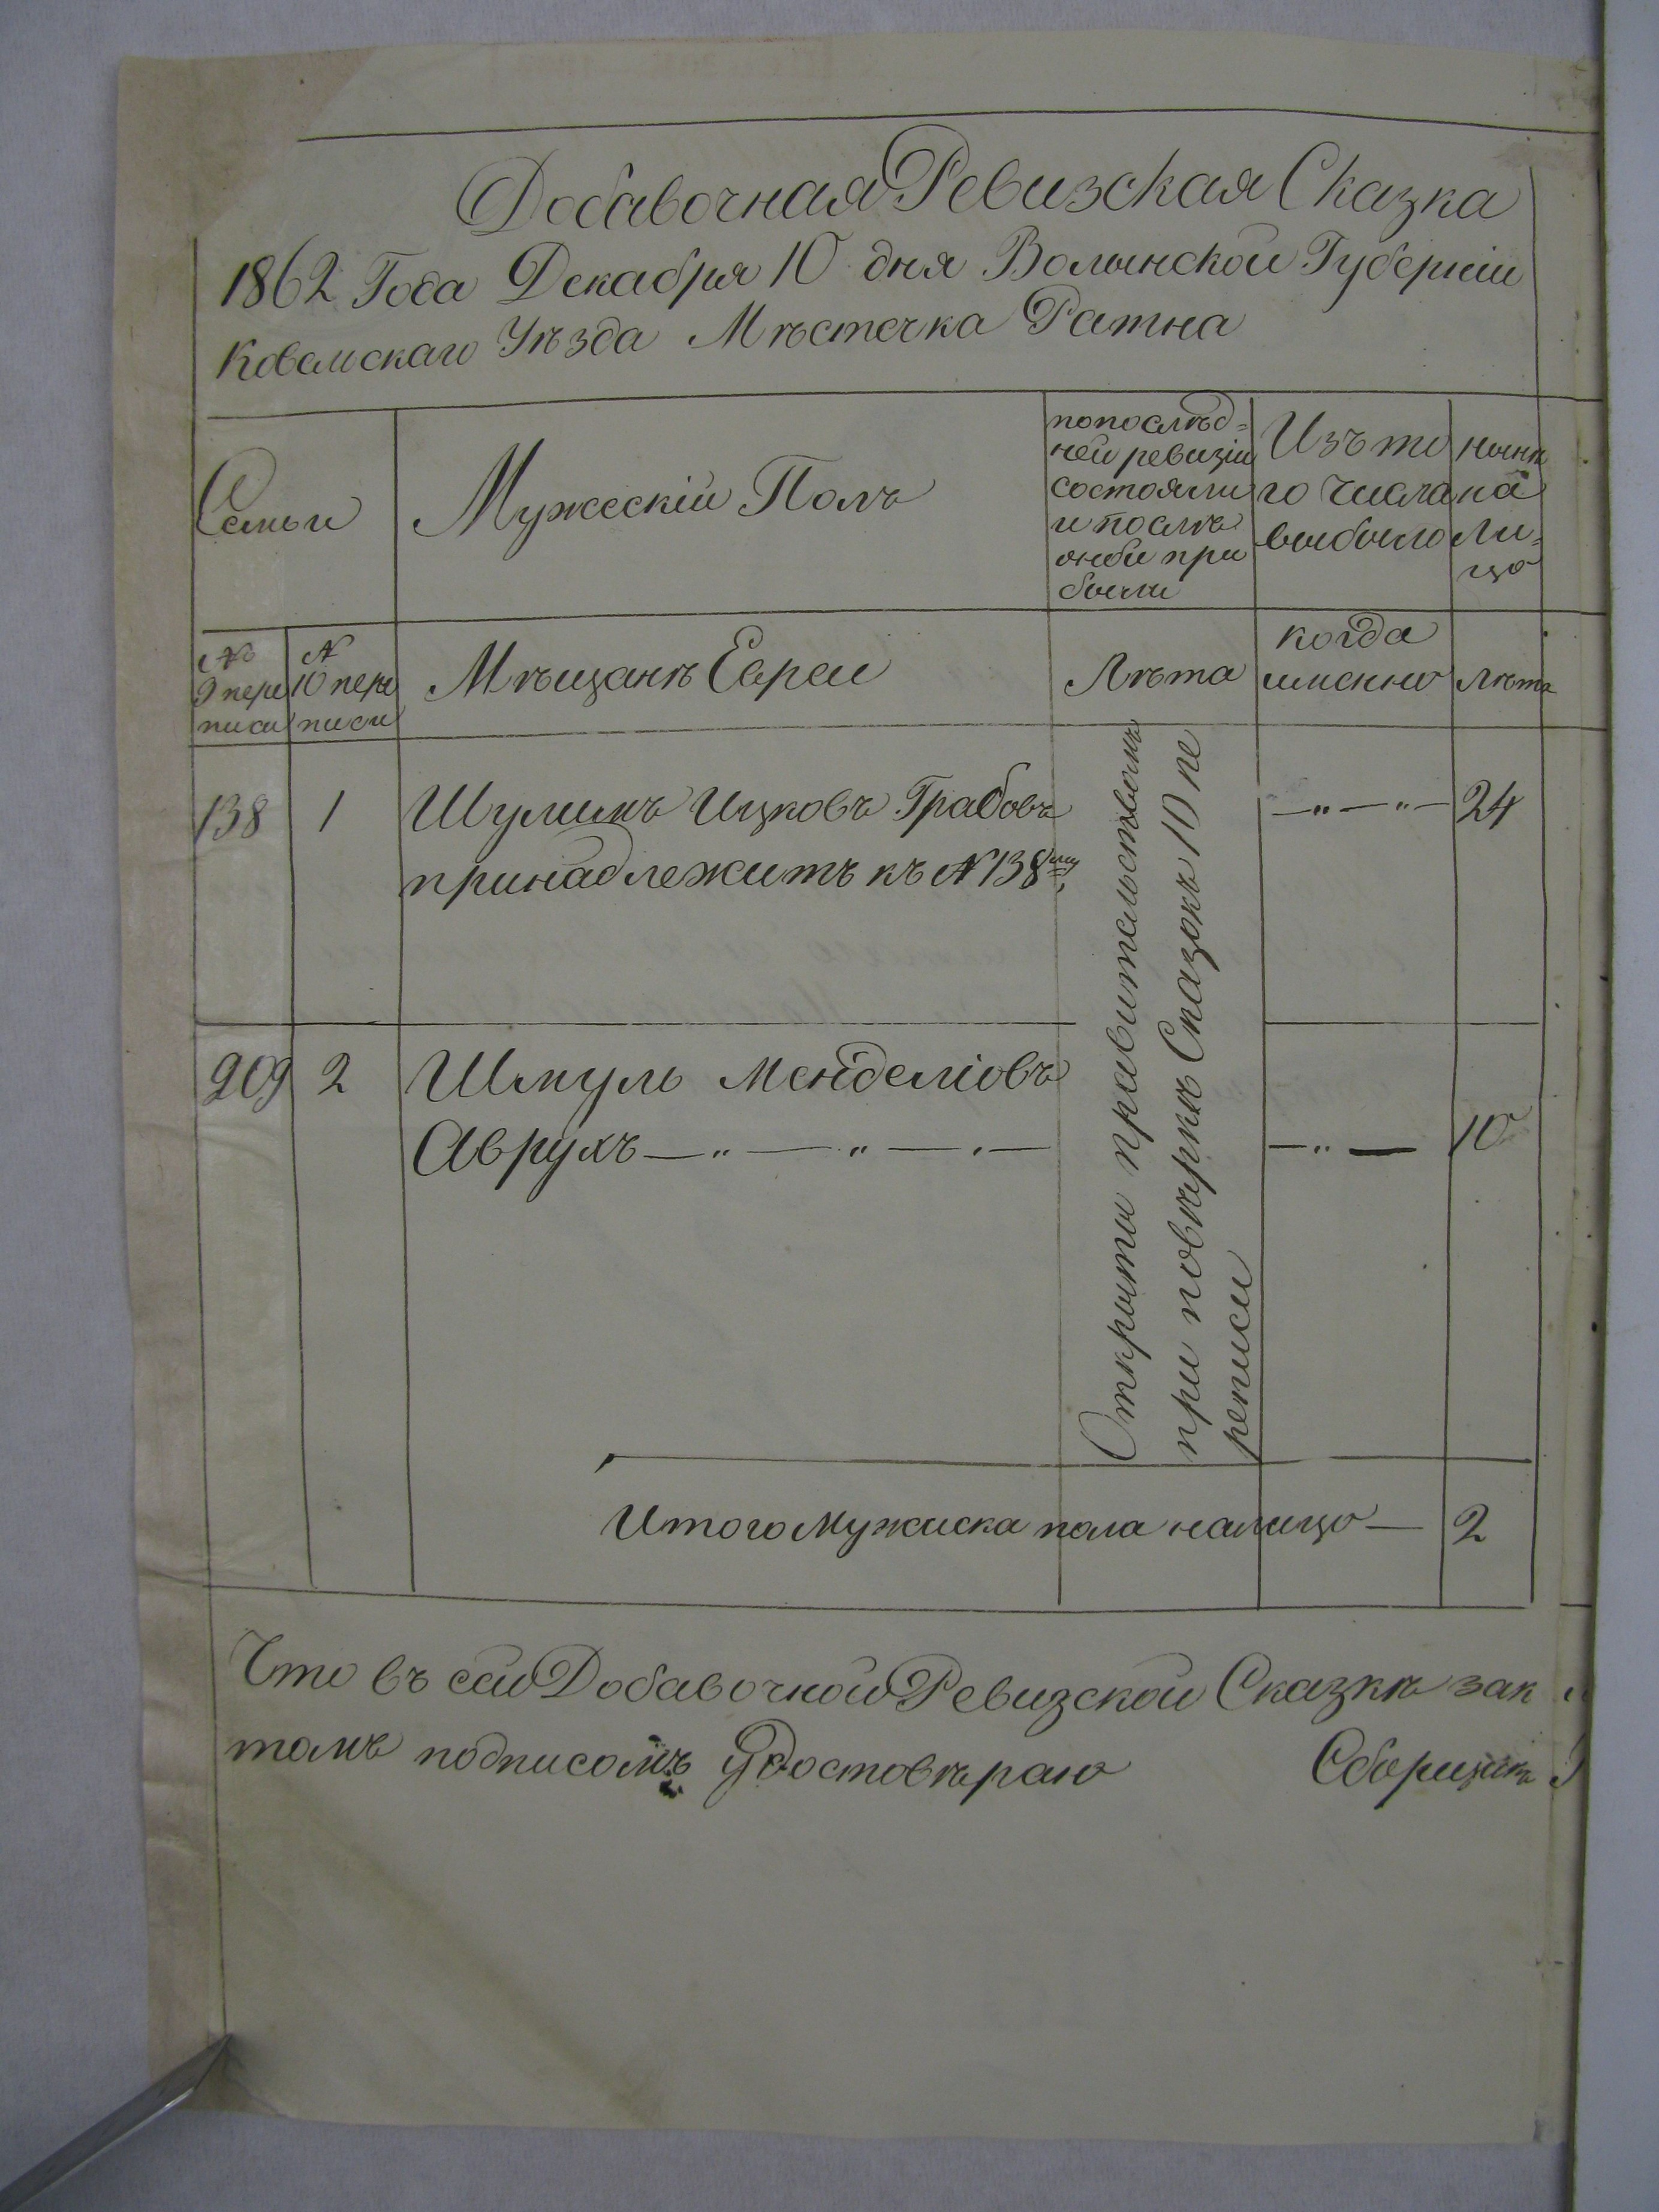 Добавочная Ревизская Сказка
1862 Года Декабря 10 дня Волынской Губерніи
Ковельскаго Уѣзда Мѣстечка Ратна
Семьи
Мужескій Полъ
попослѣд=
ней ревизіи
состояли
и послѣ
онѣй при
были
Изъ то
го числа
выбыло
нынѣ
на
ли=
цо
№
9 пере
писи
№
10 пере
писи
Мѣщанѣ Евреи
Лѣта
когда
именно
Лѣта
138 1 Шулимъ Ицковъ Грабовъ — " — " — 24
принадлежитъ къ № 138му
209 2 Шмуль Менделіовъ
Аврухъ — " — " — " — — " — 10
Открыты правительствомъ
при повѣркѣ Сказокъ 10 пе
реписи
Итого Мужеска пола налицо — 2
Что въ сей Добавочной Ревизской Сказкѣ зак
томъ подписомъ Удостовѣраю Сборщикъ